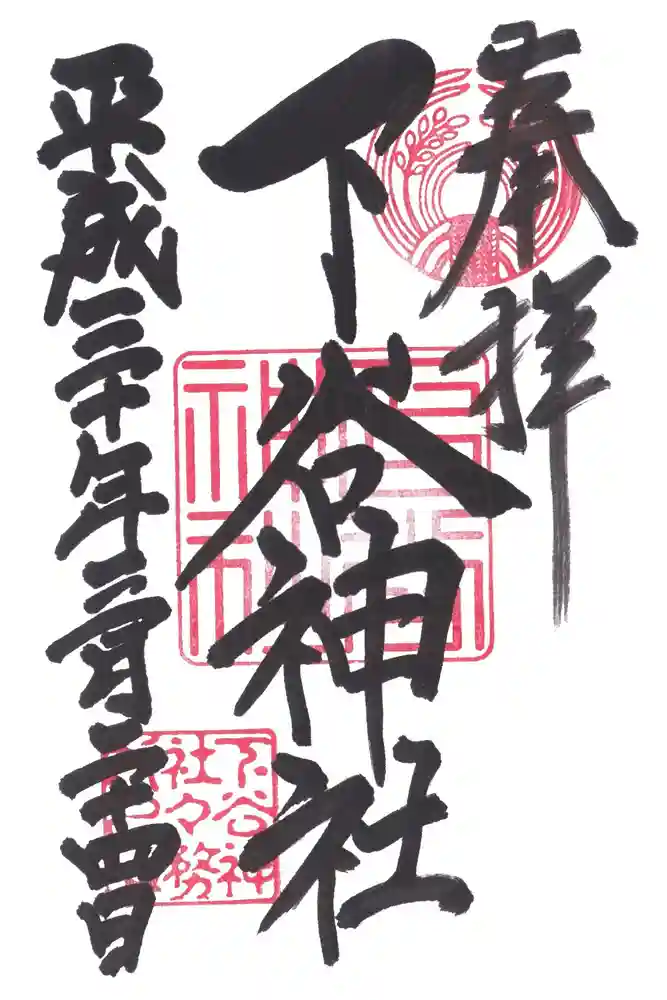 奉拝
下谷神社
平成三十年二月二十四日
下谷神
社々務